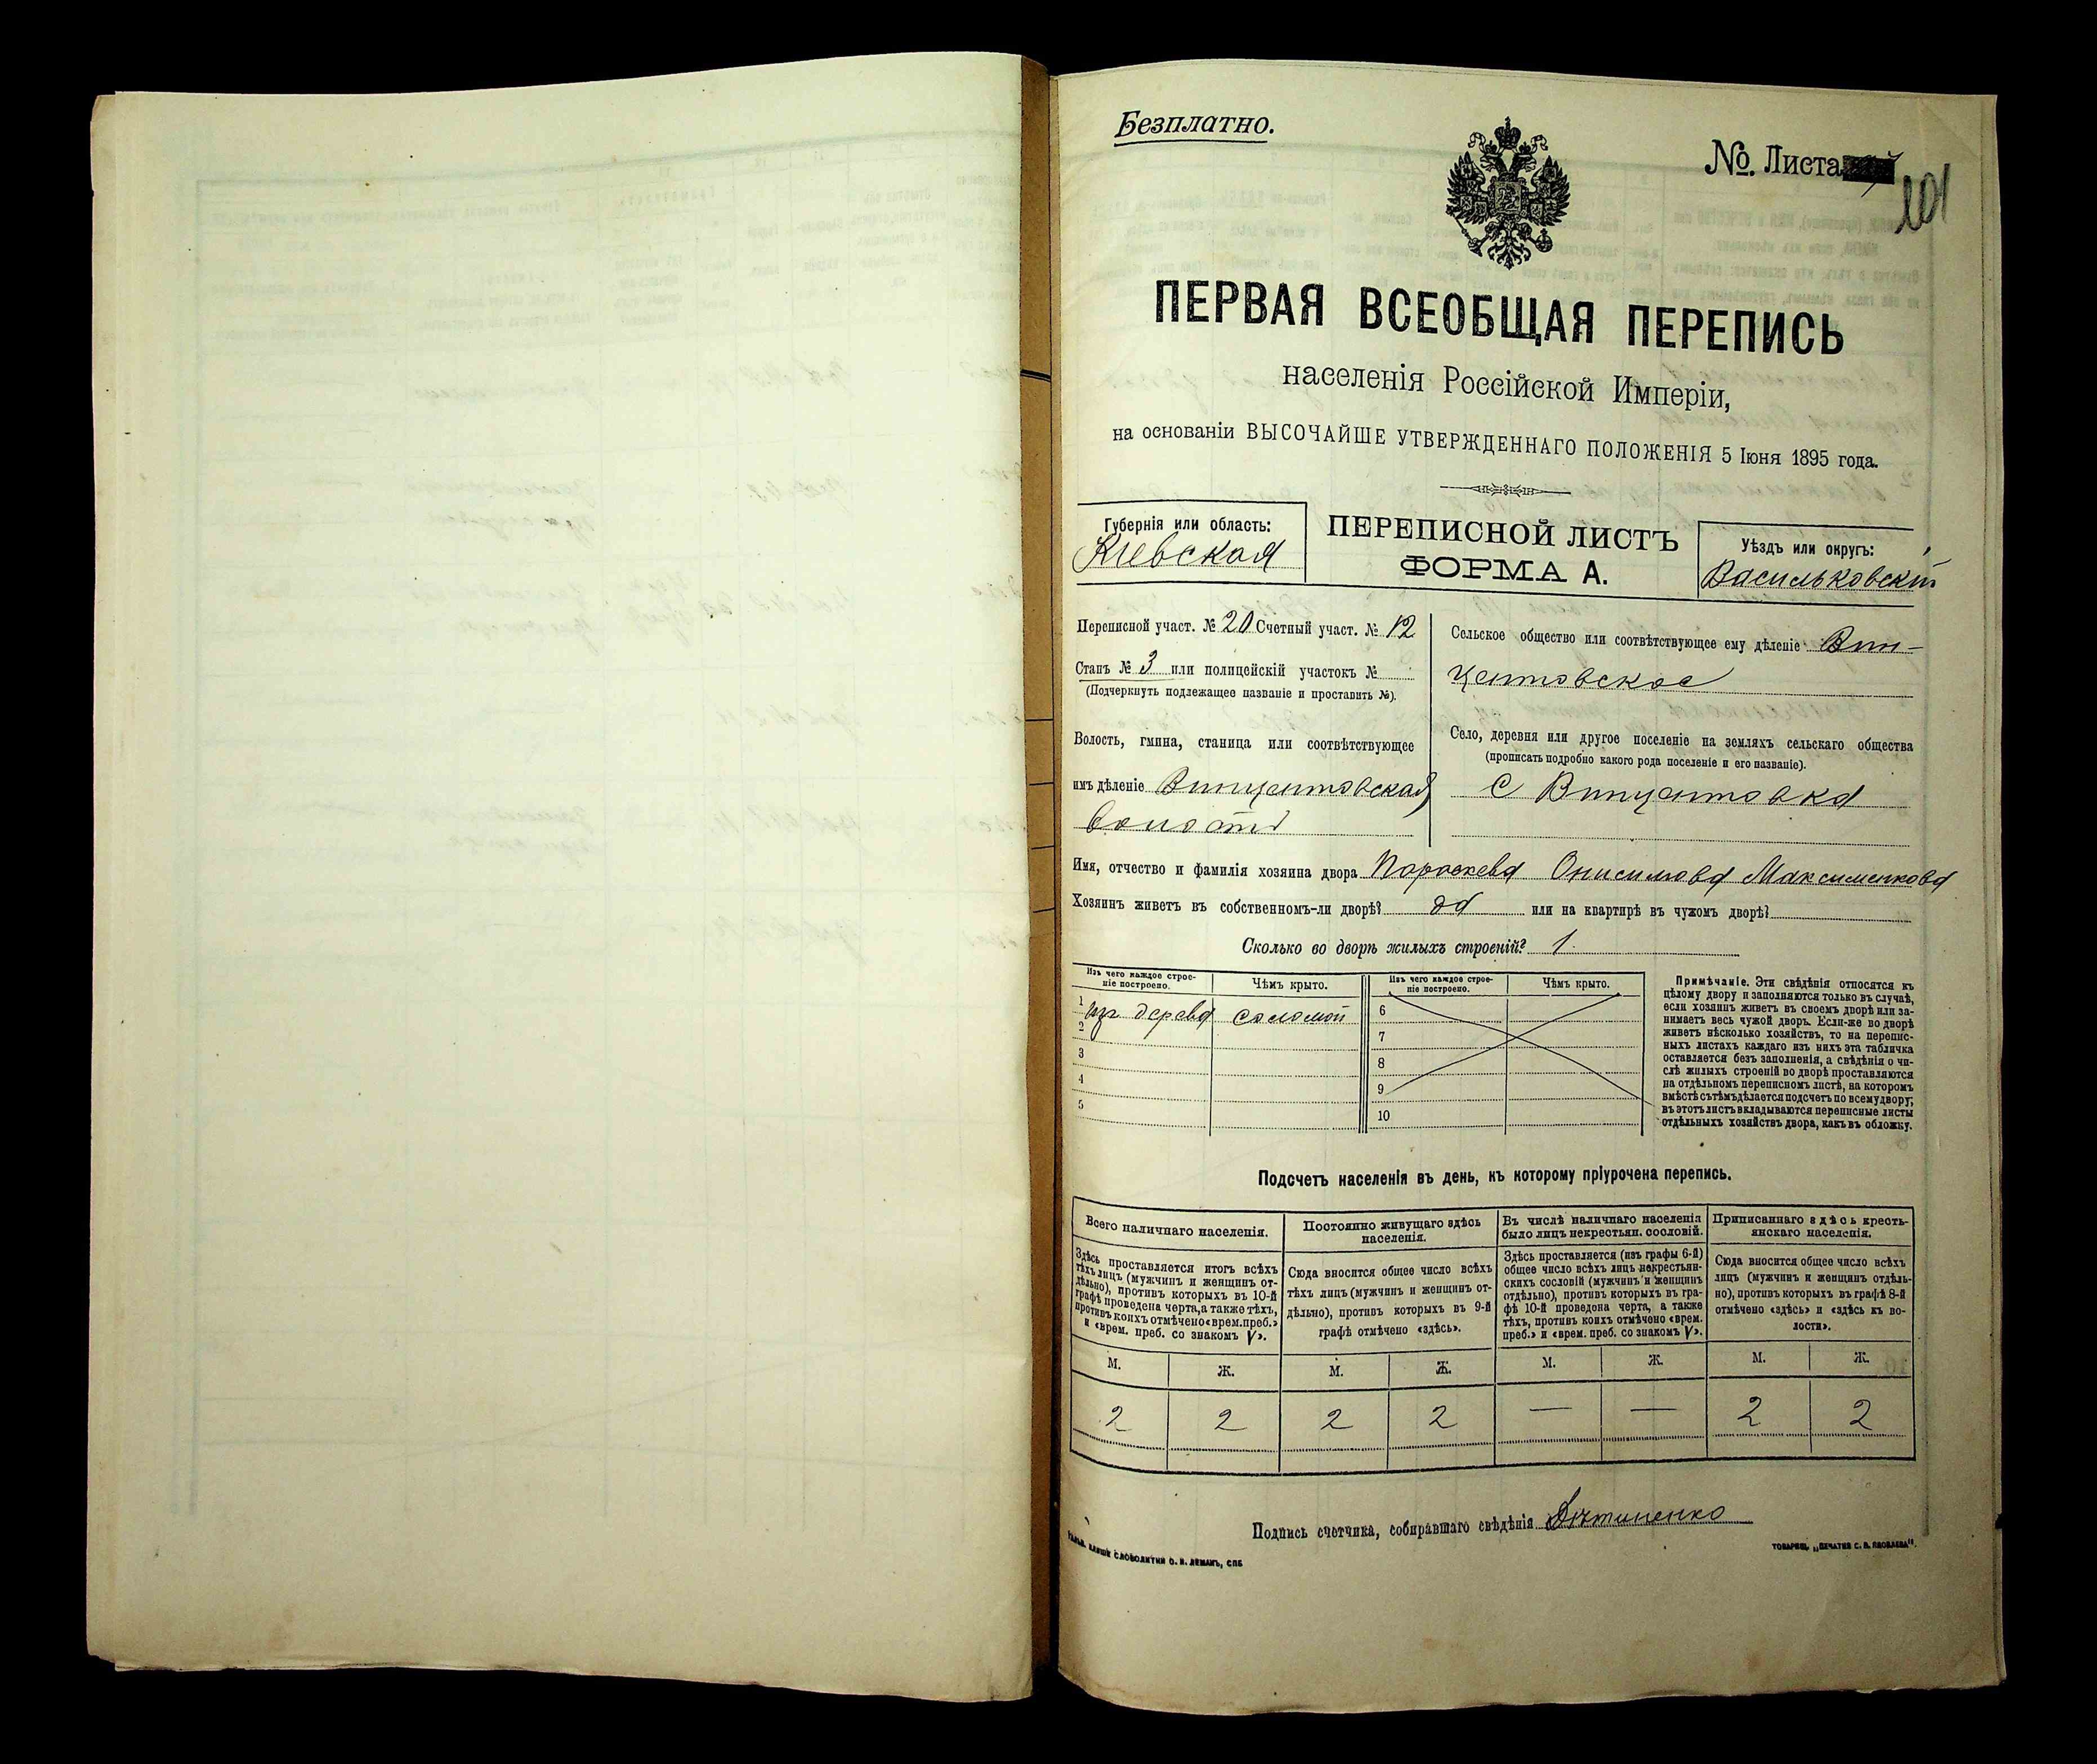 Безплатно.
№ Листа
101
ПЕРВАЯ ВСЕОБЩАЯ ПЕРЕПИСЬ
населенія Россійской Имперіи,
на основаніи ВЫСОЧАЙШЕ УТВЕРЖДЕННАГО ПОЛОЖЕНІЯ 5 Іюня 1895 года.
Губернія или область:
Кіевская
ПЕРЕПИСНОЙ ЛИСТЪ
ФОРМА А.
Уѣздъ или округъ:
Васильковскій
Переписной участ. № 20 Счетный участ. № 12
Станъ № 3 или полицейскій участокъ №
(Подчеркнуть подлежащее названіе и проставить №).
Волость, гмина, станица или соотвѣтствующее
имъ дѣленіе Винцентовская
Сельское общество или соотвѣтствующее ему дѣленіе Вин-
центовское
Село, деревня или другое поселеніе на земляхъ сельскаго общества
(прописать подробно какого рода поселеніе и его названіе).
с Винцентовка
Имя, отчество и фамилія хозяина двора Параскева Онисимова Максименкова
Хозяинъ живетъ въ собственномъ-ли дворѣ? да или на квартирѣ въ чужомъ дворѣ?
Сколько во дворѣ жилыхъ строеній? 1.
Изъ чего каждое строе-
ніе построено.
Чѣмъ крыто.
1 изъ дерева соломой
2
3
4
5
Изъ чего каждое строе-
ніе построено.
Чѣмъ крыто.
6
7
8
9
10
Примѣчаніе. Эти свѣдѣнія относятся къ
цѣлому двору и заполняются только въ случаѣ,
если хозяинъ живетъ въ своемъ дворѣ или за-
нимаетъ весь чужой дворъ. Если-же во дворѣ
живетъ нѣсколько хозяйствъ, то на перепис-
ныхъ листахъ каждаго изъ нихъ эта табличка
оставляется безъ заполненія, а свѣдѣнія о чи-
слѣ жилыхъ строеній во дворѣ проставляются
на отдѣльномъ переписномъ листѣ, на которомъ
вмѣстѣ съ тѣмъ дѣлается подсчетъ по всему двору;
въ этотъ листъ вкладываются переписные листы
отдѣльныхъ хозяйствъ двора, какъ въ обложку.
Подсчетъ населенія въ день, къ которому пріурочена перепись.
Всего наличнаго населенія.
Здѣсь проставляется итогъ всѣхъ
тѣхъ лицъ (мужчинъ и женщинъ от-
дѣльно), противъ которыхъ въ 10-й
графѣ проведена черта, а также тѣхъ,
противъ коихъ отмѣчено «врем. преб.»
и «врем. преб. со знакомъ V».
Постоянно живущаго здѣсь
населенія.
Сюда вносится общее число всѣхъ
тѣхъ лицъ (мужчинъ и женщинъ от-
дѣльно), противъ которыхъ въ 9-й
графѣ отмѣчено «здѣсь».
Въ числѣ наличнаго населенія
было лицъ некрестьян. сословій.
Здѣсь проставляется (изъ графы 6-й)
общее число всѣхъ лицъ некрестьян-
скихъ сословій (мужчинъ и женщинъ
отдѣльно), противъ которыхъ въ гра-
фѣ 10-й проведена черта, а также
тѣхъ, противъ коихъ отмѣчено «врем.
преб.» и «врем. преб. со знакомъ V».
Приписаннаго здѣсь кресть-
янскаго населенія.
Сюда вносится общее число всѣхъ
лицъ (мужчинъ и женщинъ отдѣль-
но), противъ которыхъ въ графѣ 8-й
отмѣчено «здѣсь» и «здѣсь къ во-
лости».
М. Ж. М. Ж. М. Ж. М. Ж.
2 2 2 2 — — 2 2
Подпись счетчика, собиравшаго свѣдѣнія
СЛОВОЛИТНИ О. И. ЛЕМАНЪ, СПБ
ТОВАРИЩ. „ПЕЧАТНЯ С. П. ЯКОВЛЕВА".